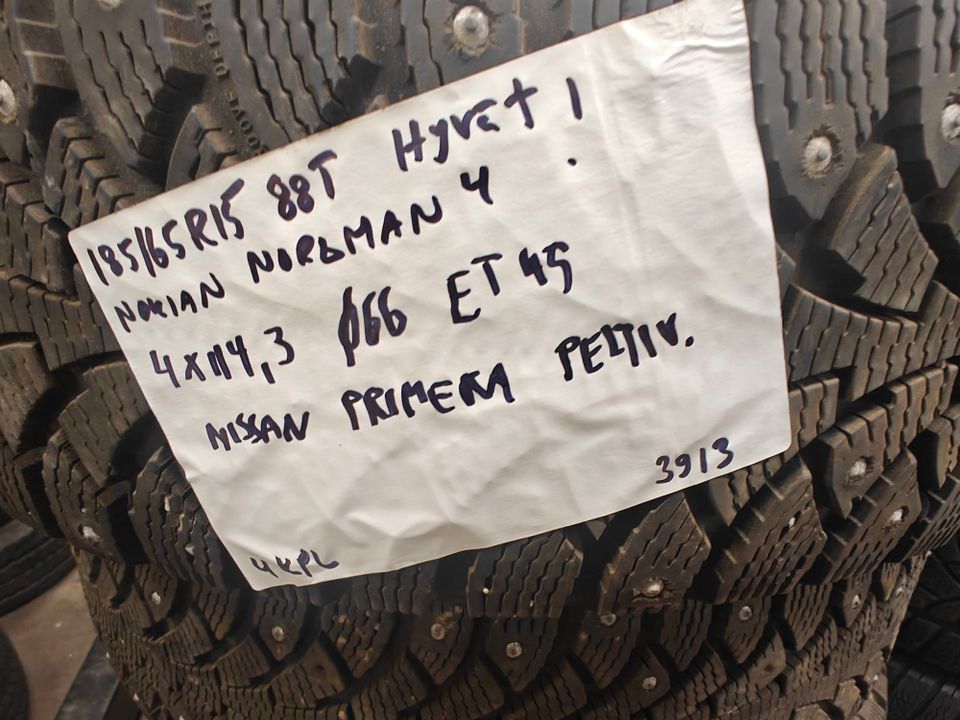 185/65R15 88T Hyvät!
NOKIAN NORDMAN 4
4x114,3 Ø66 ET45
NISSAN PRIMERA PELTIV.
3913
4KPL